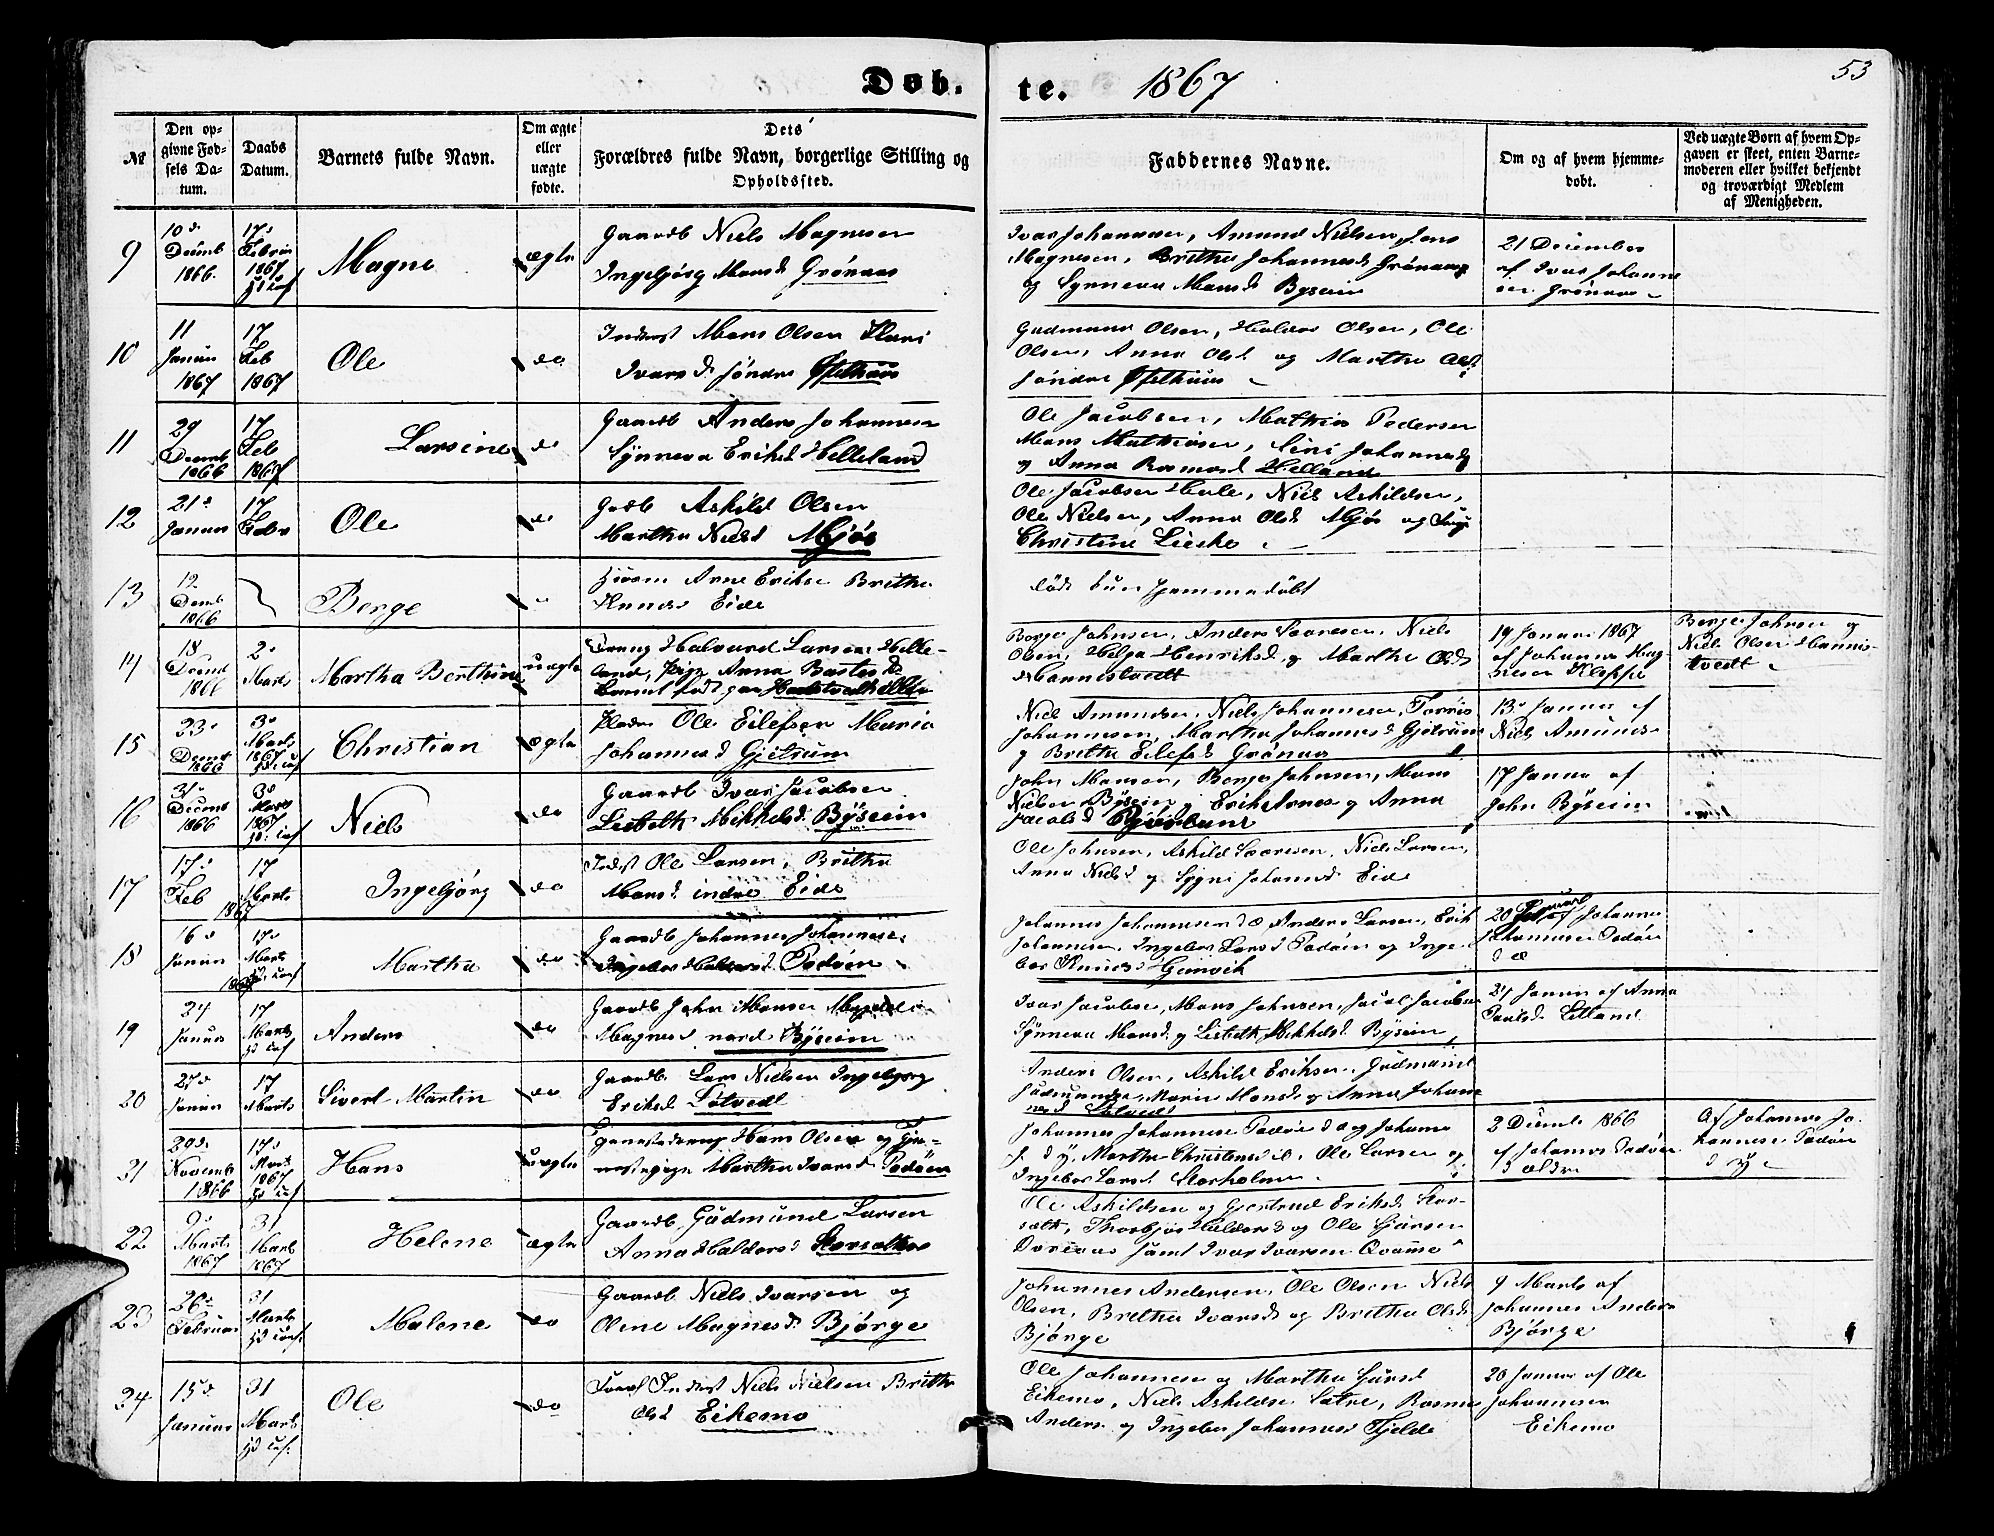 Døb. te. 1867
53
№
Den op-
givne Fød-
sels Da-
tum.
Daabs
Datum.
Barnets fulde Navn.
Om ægte
eller
uægte
fødte.
Dets
Forældres fulde Navn, borgerlige Stilling og
Opholdssted.
Faddernes Navne.
Om og af hvem hjemme-
døbt.
Ved uægte Børn af hvem Op-
gaven er skeet, enten Barne-
moderen eller hvilket bekjendt
og troværdigt Medlem
af Menigheden.
9
10 Decemb 1866
17 Februar 1867
Magne
ægte
Gaardb Niels Magnesen
Ingebjørg Monsd Grønaas
Ivar Johannesen, Amund Nielsen, Jens
Magnesen, Britha Johannesd Grønaas
og Synneva Monsd Byseim
21 December
af Ivar Johanne
sen Grønaas
10
11 Januar 1867
17 Feb 1867
Ole
do
Inderst Mons Olsen Kari
Ivarsd søndre Øfsthuus
Gudmund Olsen, Haldor Olsen, Ole
Olsen, Anna Olsd og Martha Olsd
søndre Øfsthuus
11
29 Decemb 1866
17 Feb 1867
Larsine
do
Gaardb Anders Johannesen
Synneva Eriksd Helleland
Ole Jacobsen, Mathis Pedersen
Mons Mathiasen, Siri Johannesd
og Anna Rasmusd Helland
12
21 Januar
17 Febr
Ole
do
Gadb Askild Olsen
Martha Nielsd Mjøs
Ole Jacobsen, Niels Askildsen,
Ole Nielsen, Anna Olsd Mjøs og
Christine Lieske
13
12 Decmb 1866
Berge
Arne Eriksen Britha
Knudsd Eide
døde kun hjemmedøbt
14
18 Decmb 1866
2 Marts
Martha Berthine
uægte
Dreng Halvard Larsen Helle-
land, Pige Anna Bastesd
Barnet født paa
Børge Johnsen, Anders Larsen, Niels
Olsen, Helga Henriksd og Martha Olsd
Hannistvedt
19 Januar 1867
af Johannes Mag
nesen Kleppe
Børge Johnsen og
Niels Olsen Hannis-
tvedt
15
23 Decmb 1866
3 Marts 1867
Christian
ægte
Plads Ole Eilefsen Maria
Johannesd Gjetrum
Niels Amundsen, Niels Johannesen, Torris
Johannesen, Martha Johannesd Gjetrum
og Britha Eilefsd Grønaas
13 Januar af
Niels Amunds-
16
31 Decemb 1866
3 Marts 1867
Niels
do
Gaardb Ivar Jacobsen
Lisbeth Mikkelsd Byseim
John Monsen, Børge Johnsen, Mons
Nielsen Byseim, og Anna
Jacobsd
17 Januar af
John Byseim
17
17 Feb 1867
17 Marts
Ingebjørg
do
Indst Ole Larsen, Britha
Monsd indre Eide
Ole Johnsen, Askild Larsen, Niels Larsen,
Anna Nielsd og Johannesd Eide
18
16 Januar
17 Marts
Martha
do
Gaardb Johannes Johannesen
Ingebor Haldorsd Tadøen
Johannes Johannesen d æ Anders Larsen, Erik
Johannesen, Ingebor Larsd Tadøen og Inge-
bor Knudsd
20 af Johannes
Johannesen Tadøen
d æ
19
24 Januar
17 Marts
Anders
do
Gaardb John Monsen
Magnesd nord Byseim
Ivar Jacobsen, Mons Johnsen, Jacob Jacobsen
Synneva Monsd og Lisbeth Mikkelsd Byseim
24 Januar af Anna
20
27 Januar
17 Marts
Sivert Martin
do
Gaardb Lars Nielsen Ingebjørg
Eriksd Løtvedt
Anders Olsen, Askild Eriksen, Gudmund
Gudmundsen, Marie Monsd og Anna Johan-
nesd Løtvedt
21
29 Novemb 1866
17 Marts 1867
Hans
uægte
Tjenestedreng Hans Olsen og Tje-
nestepige Martha Ivarsd Tadøen
Johannes Johannesen Tadøen d æ og Johannes
J. d y, Martha Christensd, Ole Larsen og
Ingebor Larsd Storholmen
2 Decemb 1866
af Johannes Tadøen
d ældre
Af Johannes Jo-
hannesen Tadøen
d y
22
9 Marts 1867
31 Marts 1867
Helene
ægte
Gaardb Gudmund Larsen
Anna Haldorsd Storsæther
Ole Askildsen og Gjertrud Eriksd Stor-
sæth, Thorbjør Haldorsd og Ole
samt Ivar Ivarsen Qvamme
23
26 Februar
31 Marts
Malene
do
Gaardb Niels Ivarsen og
Oline Magnesd Bjørge
Johannes Andersen, Ole Olsen Niels
Olsen, Britha Ivarsd og Britha Olsd
Bjørge
9 Marts af
Johannes Anders
Bjørge
24
15 Januar
31 Marts
Ole
do
Inderst Niels Nielsen Britha
Olsd Eikemo
Ole Johannesen og Martha Larsd
Eikemo, Niels Askildsen Sætre, Rasmus
Anders og Ingebor Johannesd Fjelde
20 Januar af Ole
Johannesen
Eikemo